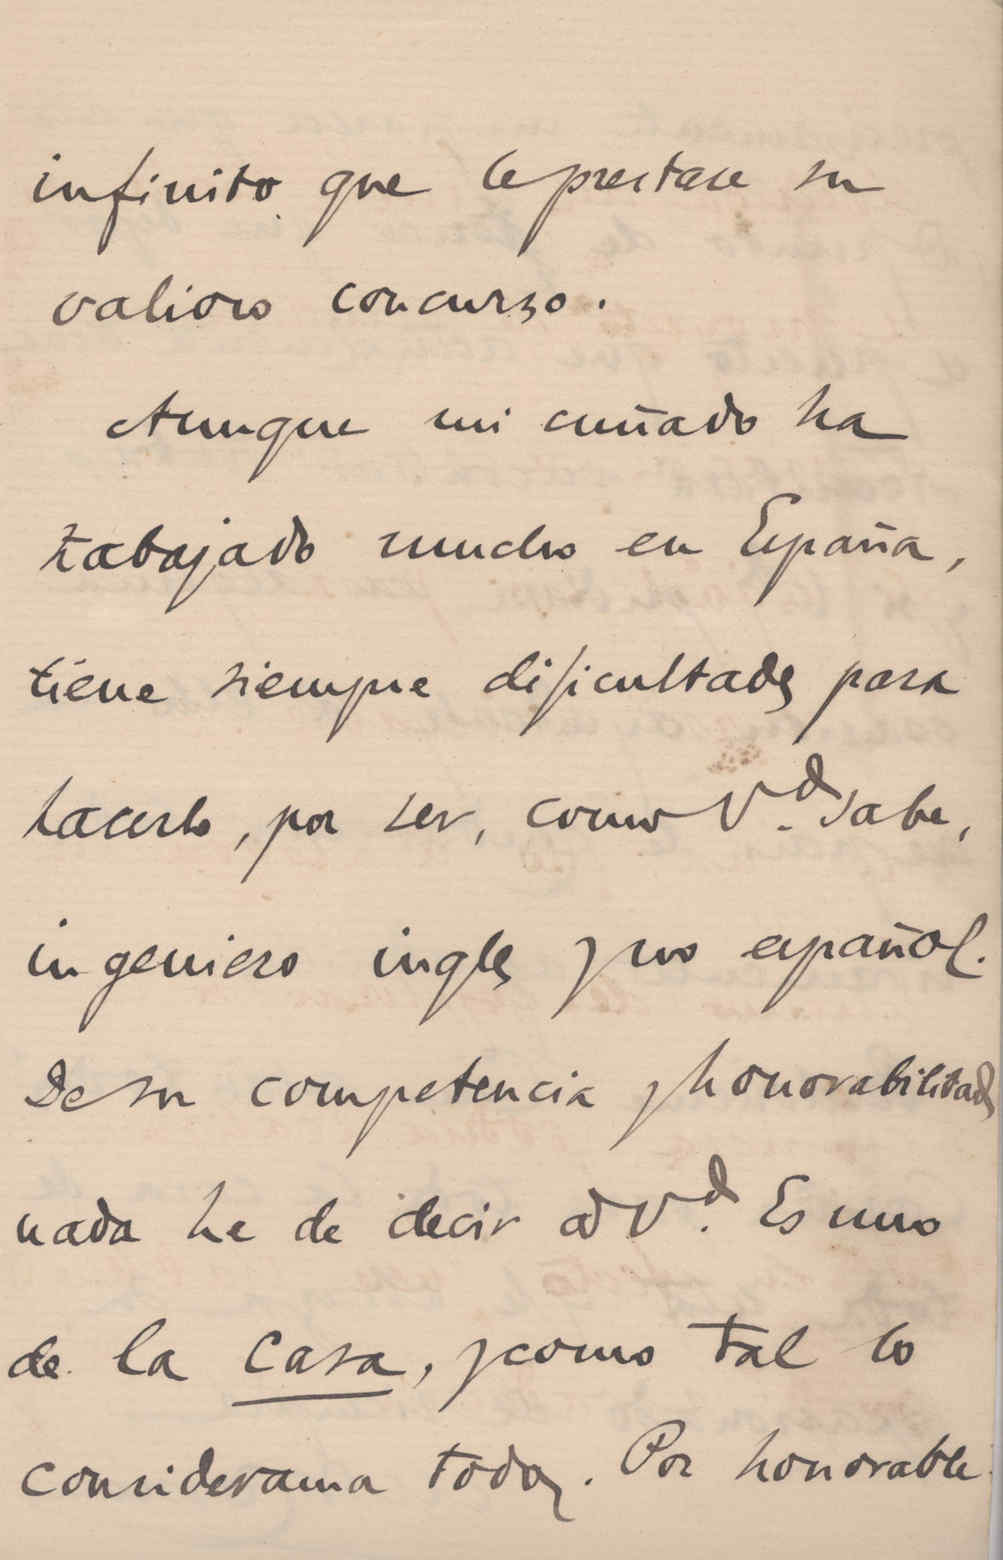 infinito que le prestase su
valioso concurso.
Aunque mi cuñado ha
trabajado mucho en España,
tiene siempre dificultades para
hacerlo, por ser, como V.d sabe,
ingeniero ingles y no español.
De su competencia y honorabilidad
nada he de decir a V.d. Es uno
de la casa, y como tal lo
consideramos todos. Por honorable